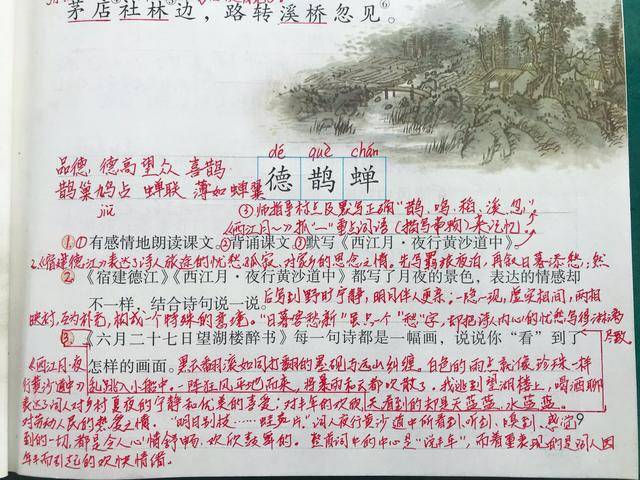 茅店社林边，路转溪桥忽见⑥。
dé què chán
品德、德高望众 喜鹊
德鹊蝉
鹊巢鸠占 蝉联 薄如蝉翼
jiū
③师指导材点及默写正确“鹊、鸣、稻、溪、忽”
《西江月~》抓“一”重点词语（描写事物）来记忆。
①①有感情地朗读课文。②背诵课文。③默写《西江月·夜行黄沙道中》。
2.《宿建德江》表达了诗人旅途的忧愁孤寂、对家乡的思念之情。先写羁旅夜泊，再叙日暮添愁，然
②《宿建德江》《西江月·夜行黄沙道中》都写了月夜的景色，表达的情感却
不一样，结合诗句说一说。后写到野旷宁静，明月伴人更亲；一隐一现，虚实相间，两相
映衬，互为补充，构成一个特殊的意境。“日暮客愁新”虽只一个“愁”字，却把诗人内心的忧愁写得淋漓
尽致。
③《六月二十七日望湖楼醉书》每一句诗都是一幅画，说说你“看”到了
《西江月·夜
怎样的画面。黑云翻滚如同打翻的墨砚与远山纠缠。白色的雨点就像珍珠一样
行黄沙道中》乱跳入小船中。一阵狂风平地而来，将暴雨和天都吹散了。我逃到望湖楼上，喝酒聊
表达了词人对乡村夏夜的宁静和优美的喜爱；对丰年的欢欣 天看到的却是天蓝蓝，水蓝蓝。
对劳动人民的热爱之情。“明月别枝……蛙声片。”词人夜行黄沙道中所看到、听到、嗅到、感觉
9
到的一切，都是令人心情舒畅、欢欣鼓舞的。整首词中的中心是“说丰年”，而着重表现的是词人因
丰年而引起的欢快情绪。